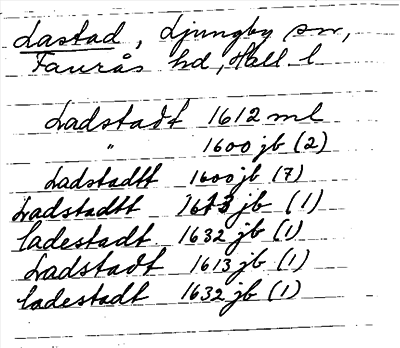 Lastad, Ljungby sn,
Faurås hd, Hall. l
Ladstadt 1612 ml
" 1600 jb (2)
Ladstadtt 1600 jb (7)
Ladstadtt 1613 jb (1)
ladestadt 1632 jb (1)
Ladstadt 1613 jb (1)
ladestadt 1632 jb (1)